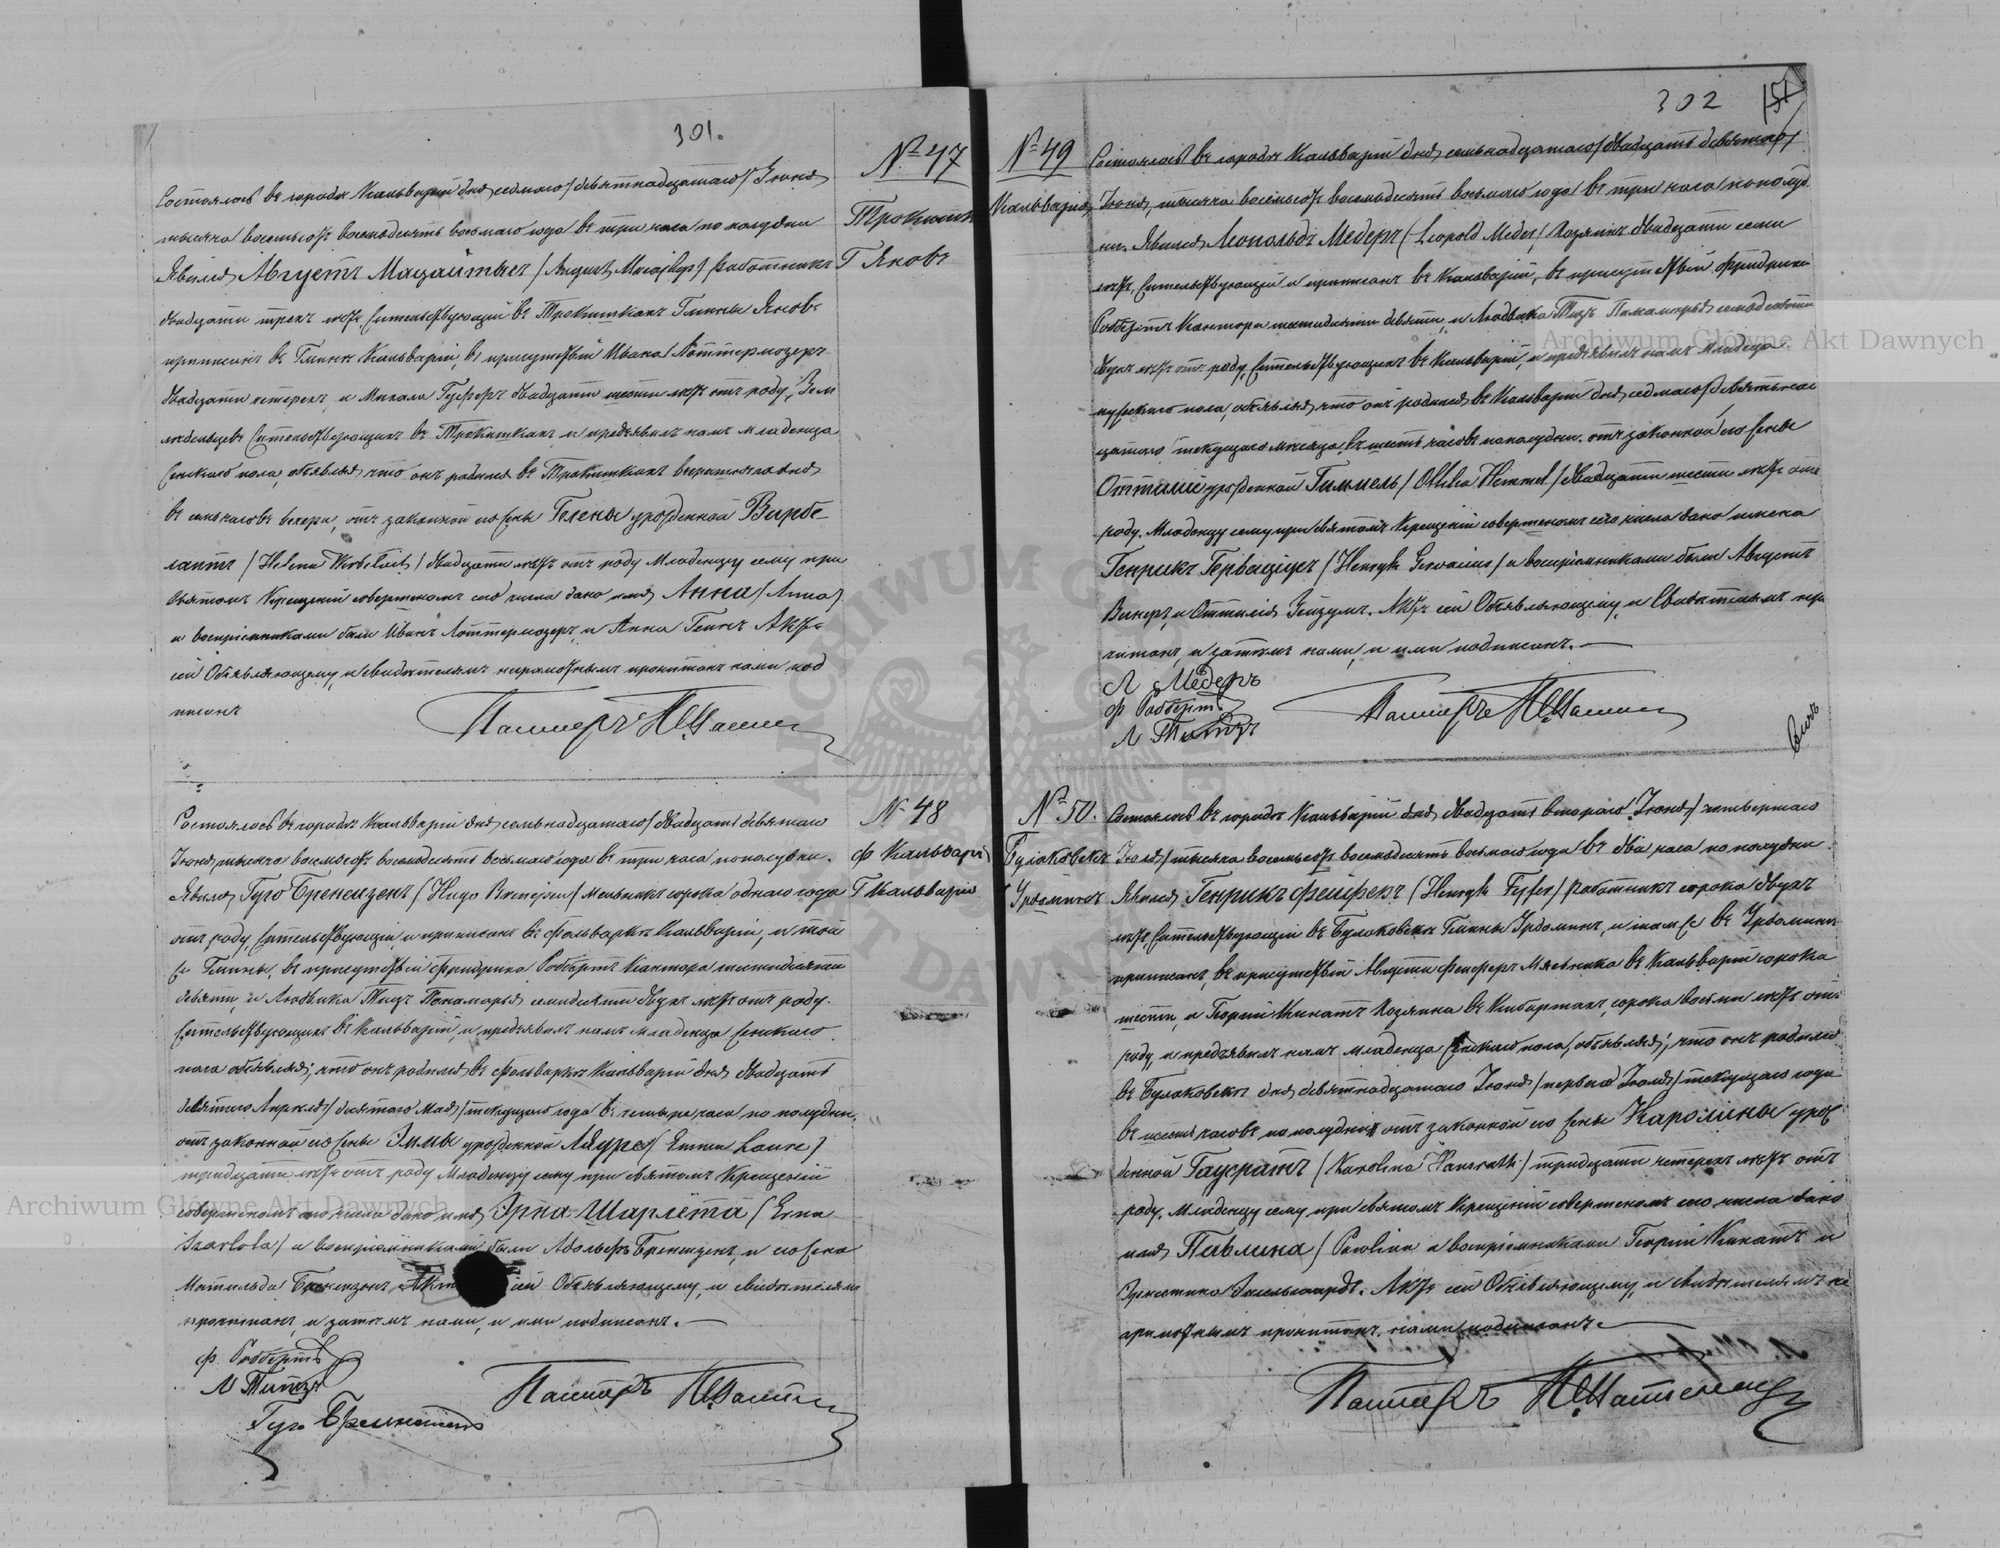 301.
№ 47
Трокишки
Г Яновъ
Состоялось въ городѣ Кальваріи дня седьмаго /девятнадцатаго/ Іюня
тысяча восемьсотъ восемьдесятъ восьмаго года въ три часа по полудни
Явился Августъ Мацайтысъ /August Macajtys/ работникъ
двадцати трехъ лѣтъ жительствующій въ Трокишкахъ Гмины Яновъ
приписанъ въ Гминѣ Кальваріи, въ присутствіи Ивана Лоттермозеръ
двадцати четырехъ, и Михала двадцати шести лѣтъ отъ роду, Зем
ледѣльцевъ жительствующихъ въ Трокишкахъ и предъявилъ намъ младенца
женскаго пола, объявляя, что онъ родился въ Трокишкахъ вчерашняго дня
въ семь часовъ вечера, отъ законной его жены Гелены урожденной Вирбе
лайтъ /Helena Wirbelait/ двадцати лѣтъ отъ роду Младенцу сему при
Святомъ Крещеніи совершенномъ сего числа дано имя Анна /Anna/
и воспріемниками были Иванъ Лоттермозеръ, и Анна Гейнъ Актъ
сей Объявляющему, и свидѣтелямъ неграмотнымъ прочитанъ нами под
писанъ
Пасторъ
№ 48
ф Кальварія
Г Кальварія
Состоялось въ городѣ Кальваріи дня семьнадцатаго /двадцать девятаго
Іюня, тысяча восемьсотъ восемьдесятъ восьмаго года въ три часа по полудни.
Явился Гуго Бренейзенъ /Hugo Brenejzen/ Мельникъ сорока одного года
отъ роду, жительствующій и приписанъ въ фольваркѣ Кальваріи, и той
же Гмины, въ присутствіи Фридриха Робертъ Кантора шестидесяти
девяти, и Людвика Тицъ Понамарья семидесяти двухъ лѣтъ отъ роду.
жительствующихъ въ Кальваріи, и предъявилъ намъ младенца женскаго
пола объявляя; что онъ родился въ фольваркѣ Кальваріи дня двадцать
девятаго Апрѣля /десятаго Мая/ текущаго года въ четыре часа по полудни,
отъ законной его жены Эммы урожденной Лауре /Emma Laure/
тридцати лѣтъ отъ роду Младенцу сему при святомъ Крещеніи
совершенномъ сего числа дано имя Эрна Шарлота /Erna
Szarlota/ и воспріемниками были Адольфъ Бренейзенъ, и его жена
Матильда Бренейзенъ Актъ сей Объявляющему, и свидѣтелямъ
прочитанъ, и затѣмъ нами, и ими подписанъ.
Ф. Робертъ
Л Титцъ
Гуго
Пасторъ
302
151
№ 49
Кальварія
Состоялось въ городѣ Кальваріи дня семьнадцатаго /двадцать девятаго/
Іюня, тысяча восемьсотъ восемьдесятъ восьмаго года въ три часа по полуд
ни. Явился Леопольдъ Медеръ (Leopold Meder/ Хозяинъ двадцати семи
лѣтъ, жительствующій и приписанъ въ Кальваріи, въ присутствіи Фридриха
Робертъ Кантора шестидесяти девяти, и Людвика Тицъ Понамарья семидесяти
двухъ лѣтъ отъ роду, жительствующихъ въ Кальваріи, и предъявилъ намъ младенца
мужескаго пола, объявляя, что онъ родился въ Кальваріи дня седьмаго /девятьнад
цатаго/ текущаго мѣсяца, въ шесть часовъ пополудни, отъ законной его жены
Оттиліи урожденной Гиммель /Ottilia Himmel/ двадцати шести лѣтъ отъ
роду. Младенцу сему при святомъ Крещеніи совершенномъ сего числа дано имена
Генрикъ Гервазіусъ /Henryk Gerwazius/ и воспріемниками были Августъ
и Оттилія Актъ сей Объявляющему, и Свидѣтелямъ про
читанъ, и затѣмъ нами, и ими подписанъ.
Л Медеръ
Ф Робертъ
Л Титцъ
Пасторъ
№ 50.
Урдоминъ
Состоялось въ городѣ Кальваріи дня двадцать втораго Іюня /четвертаго
Іюля/ тысяча восемьсотъ восемьдесятъ восьмаго года въ два часа по полудни
Явился Генрикъ Фейферъ (Henryk Fejfer/ Работникъ сорока двухъ
лѣтъ, жительствующій въ Гмины Урдоминъ, и тамже въ Урдоминѣ
приписанъ, въ присутствіи Августа Фейферъ Мясника въ Кальваріи сорока
шести, и Георгій Кинатъ Хозяина въ Кибартахъ, сорока восьми лѣтъ отъ
роду, и предъявилъ намъ младенца женскаго пола, объявляя; что онъ родился
въ дня девятнадцатаго Іюня /перваго Іюля/ текущаго года
въ шесть часовъ по полудни отъ законной его жены Каролины урож
денной Гаусратъ (Karolina Hausrath/ тридцати четырехъ лѣтъ отъ
роду, Младенцу сему при святомъ Крещеніи совершенномъ сего числа дано
имя Павлина /Pawlina и воспріемниками Георгій Кинатъ и
Актъ сей Объявляющему, и свидѣтелямъ не
грамотнымъ прочитанъ, нами подписанъ.
Пасторъ
Archiwum Główne Akt Dawnych
Archiwum Główne Akt Dawnych